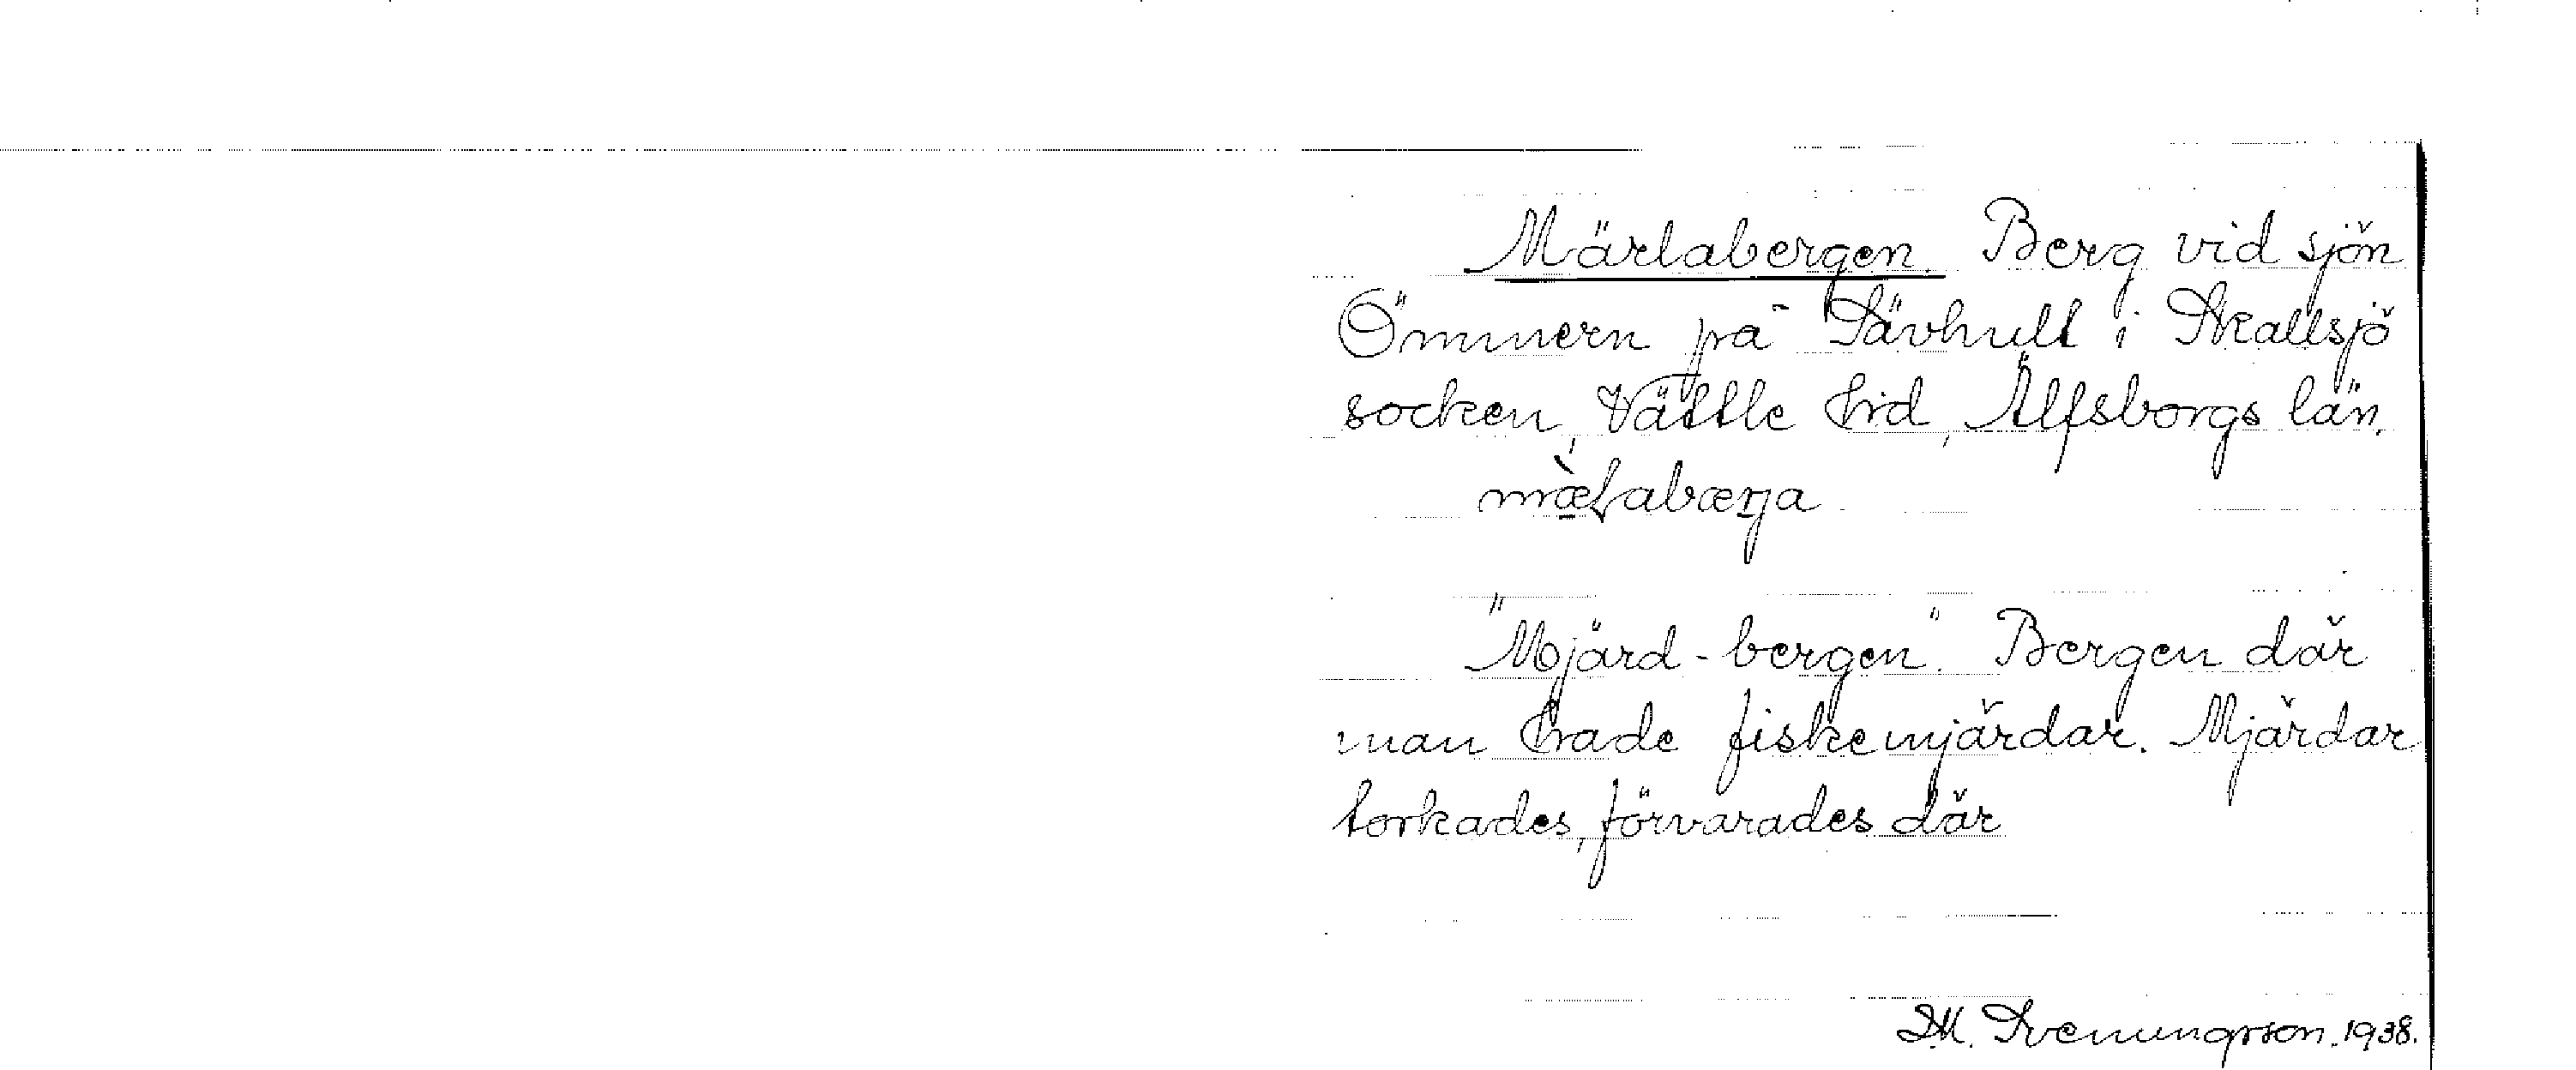 Märlabergen. Berg vid sjön
Ömmern på Sävhult i Skallsjö
socken, Vättle hrd, Älfsborgs län.
"Mjärd-bergen". Bergen där
man hade fiskemjärdar. Mjärdar
torkades, förvarades där
Svenungsson. 1938.